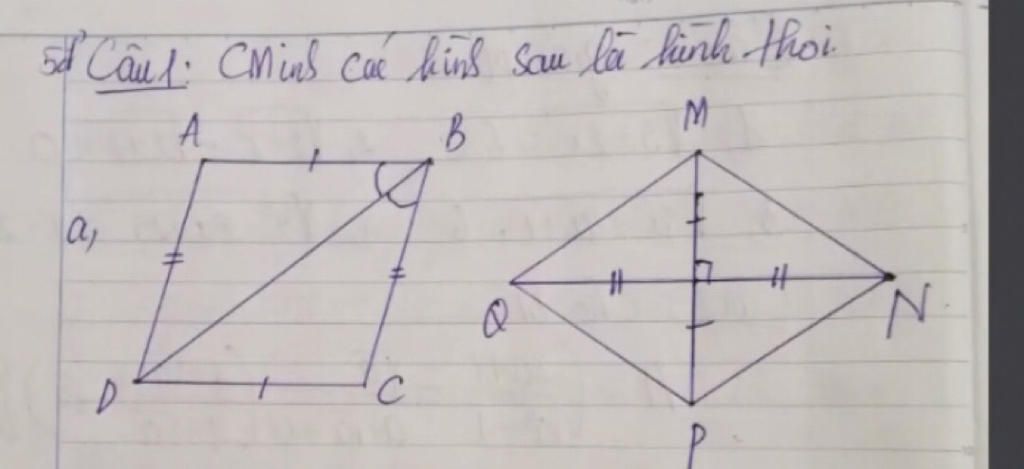 Câu 1: CMinh các hình sau là hình thoi.
A
B
M
a,
Q
N
D
C
P